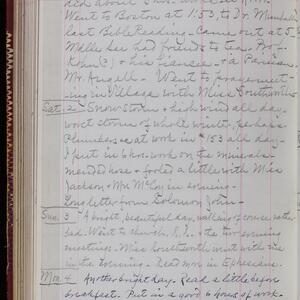 did about 5 hrs. work in A.M.
Went to Boston at 1.53 to Dr.
last Bible Reading - Came out at 5
Mlle. See had friends to tea. Prof.
Kohn(?) & his fiancée & a Parisian
Mr. Angell - Went to prayer meet-
ing in Village with Miss Southworth
Sat. 2 Snow storm & high wind all day -
worst storm of whole winter, perhaps.
Plumbers at work in #153 all day -
I put in 6 hrs. work on the
& fooled a little with Miss
Jackson & Mrs. McCoy in evening.
Long letter from Solomon John -
Sun. 3 A bright, beautiful day, walking of course rather
bad. Went to church, S.S. & the two evening
meetings. Miss Southworth went with me
in the evening. Read mon in Expressions.
Mon. 4 Another bright day. Read a little before
breakfast. Put in a good 6 hours of work -